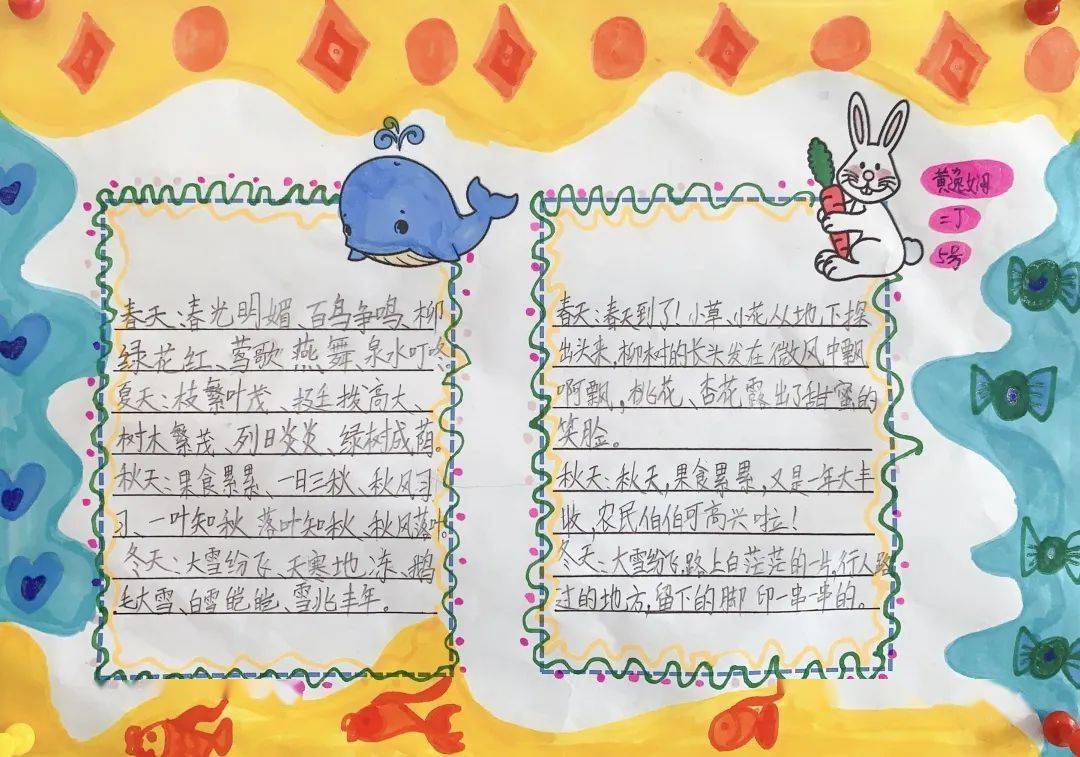 春天:春光明媚、百鸟争鸣、柳
绿花红、莺歌燕舞、泉水叮咚
夏天:枝繁叶茂、挺拨高大、
树木繁茂、列日炎炎、绿树成荫。
秋天:果食累累、一日三秋、秋风习
习、一叶知秋、落叶知秋、秋风落叶。
冬天:大雪纷飞、天寒地冻、鹅
毛大雪、白雪皑皑、雪兆丰年。
春天:春天到了!小草、小花从地下探
出头来,柳树的长头发在微风中飘
啊飘,桃花、杏花露出了甜蜜的
笑脸。
秋天:秋天,果食累累,又是一年大丰
收,农民伯伯可高兴啦!
冬天:大雪纷飞,路上白茫茫的一片,行人路
过的地方,留下的脚印一串一串的。
黄逸
二丁
5号